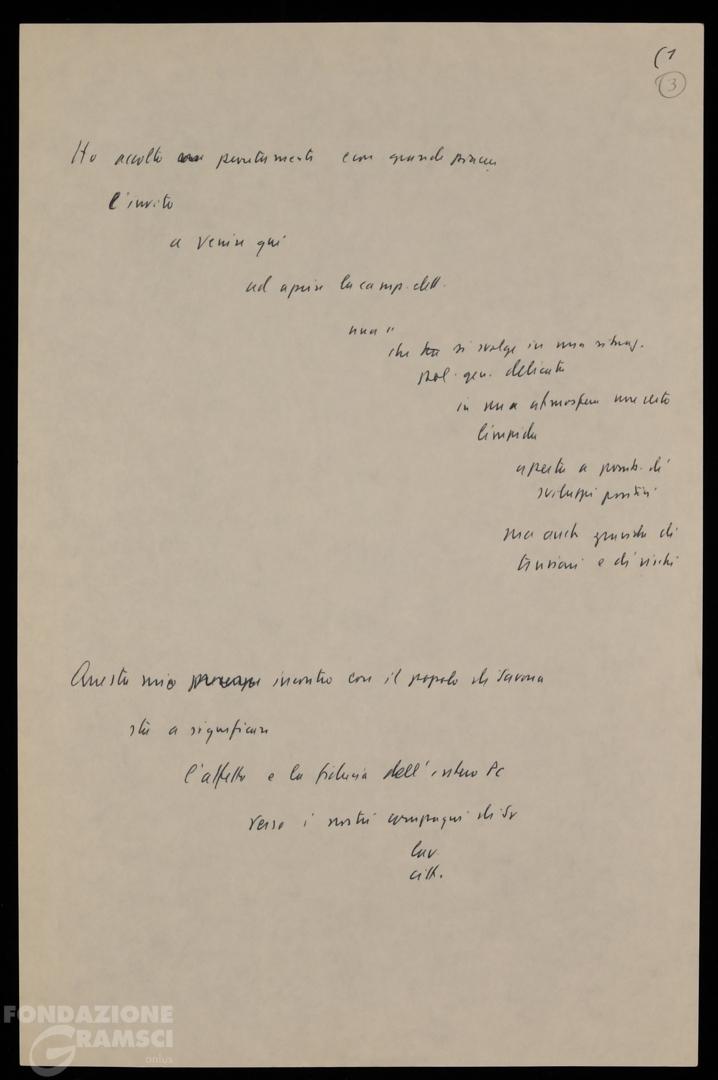 (1
3
Ho accolto prontamente con grande piacere
l'invito
a venire qui
ad aprire la camp. elett.
una "
che si svolge in una situaz.
pol. gen. delicata
in una atmosfera
limpida
aperta a possib. di
sviluppi positivi
ma anche gravida di
tensioni e di rischi
Questo mio incontro con il popolo di Savona
sta a significare
l'affetto e la fiducia dell'intero Pc
verso i nostri compagni di Sv
lav.
citt.
FONDAZIONE
GRAMSCI
onlus